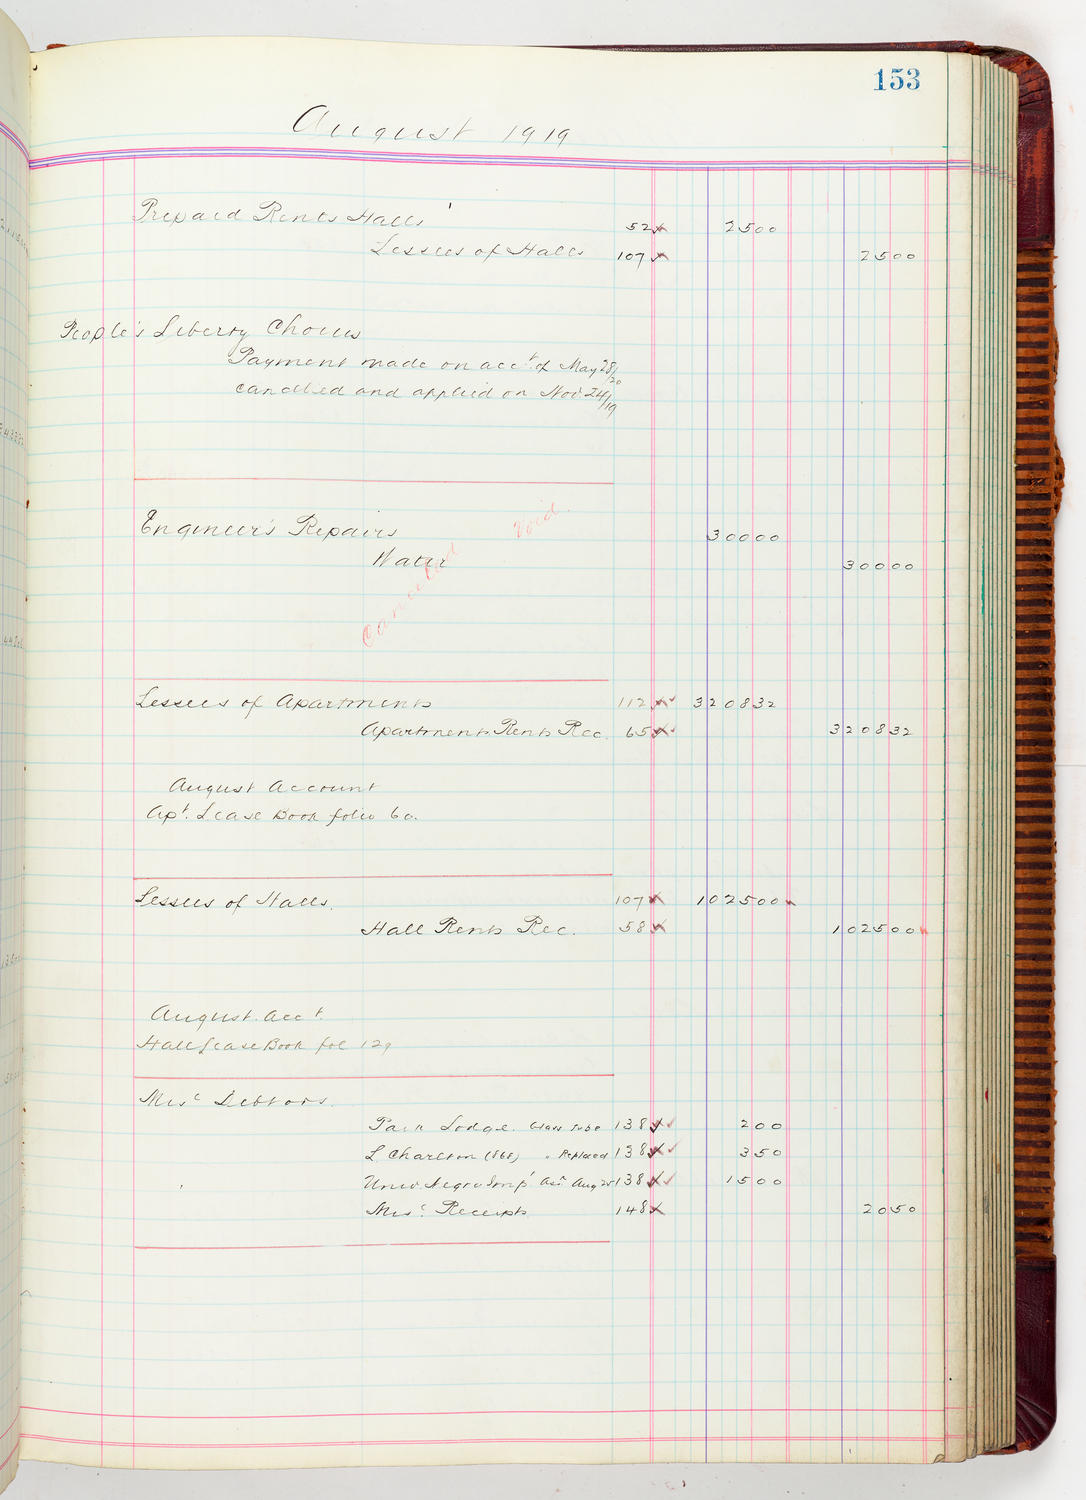 153
August 1919
Prepaid Rents Halls 52 2500
Lessees of Halls 107 2500
People's Liberty Chorus
Payment made on acct. of May 28/20
cancelled and applied on Nov 24/19
Engineer's Repairs 30000
Water 30000
Cancelled Void.
Lessees of Apartments 112 320832
Apartments Rents Rec. 65 320832
August Account
Apt. Lease Book folio 60.
Lessees of Halls. 107 102500
Hall Rents Rec. 58 102500
August. Acct.
Hall Lease Book fol 129
Misc Debtors.
Park Lodge Glass Tube 138 200
L Charlton (868) " Replaced 138 350
Univ. Negro Imp' Asn Aug 25 138 1500
Misc. Receipts 148 2050